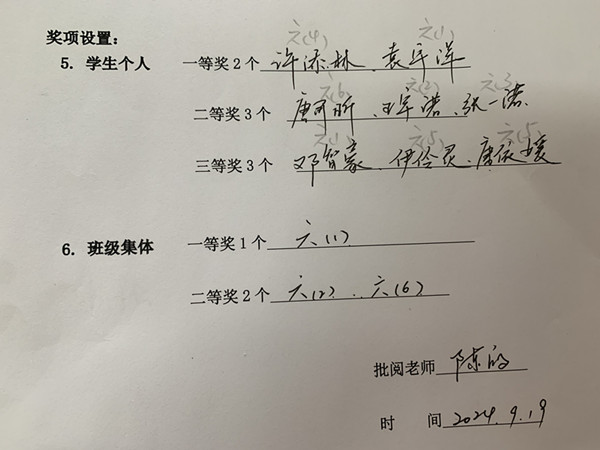 奖项设置：
六(4) 六(1)
5. 学生个人 一等奖2个 许添林、袁宇洋
六(6) 六(2) 六(3)
二等奖3个 唐可昕、王宇诺、张一诺
六(1) 六(5) 六(5)
三等奖3个 邓智豪、伊伶灵、唐依媛
6. 班级集体 一等奖1个 六(1)
二等奖2个 六(2)、六(6)
批阅老师 陈
时 间 2024.9.19